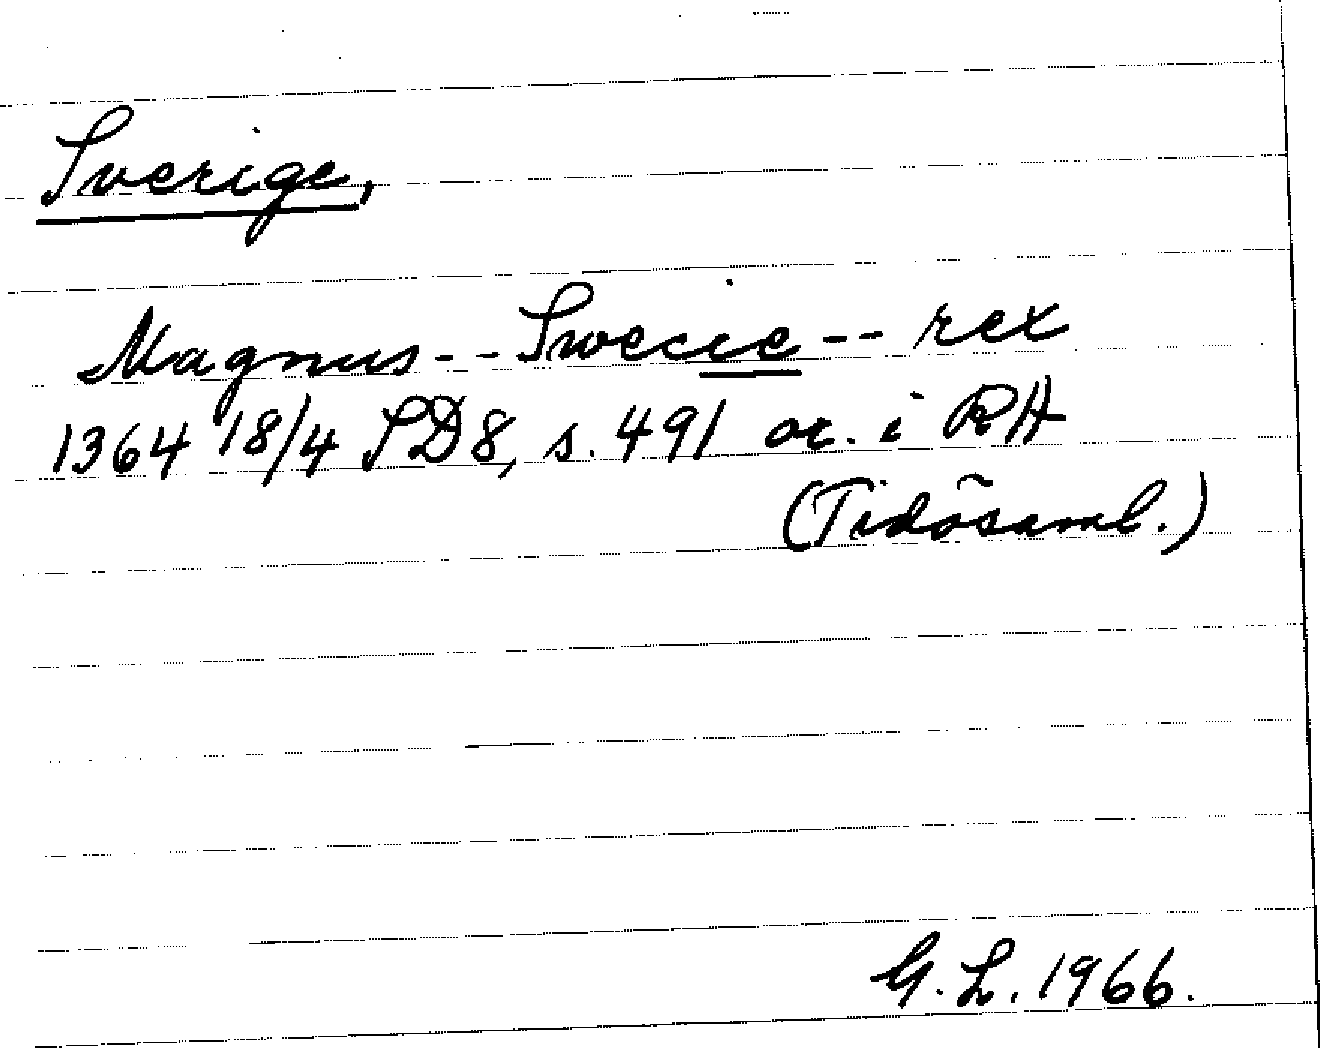 Sverige,
Magnus -- Swecie -- rex
1364 18/4 SD8, s. 491 or. i RA
(Tidösaml.)
G. L. 1966.